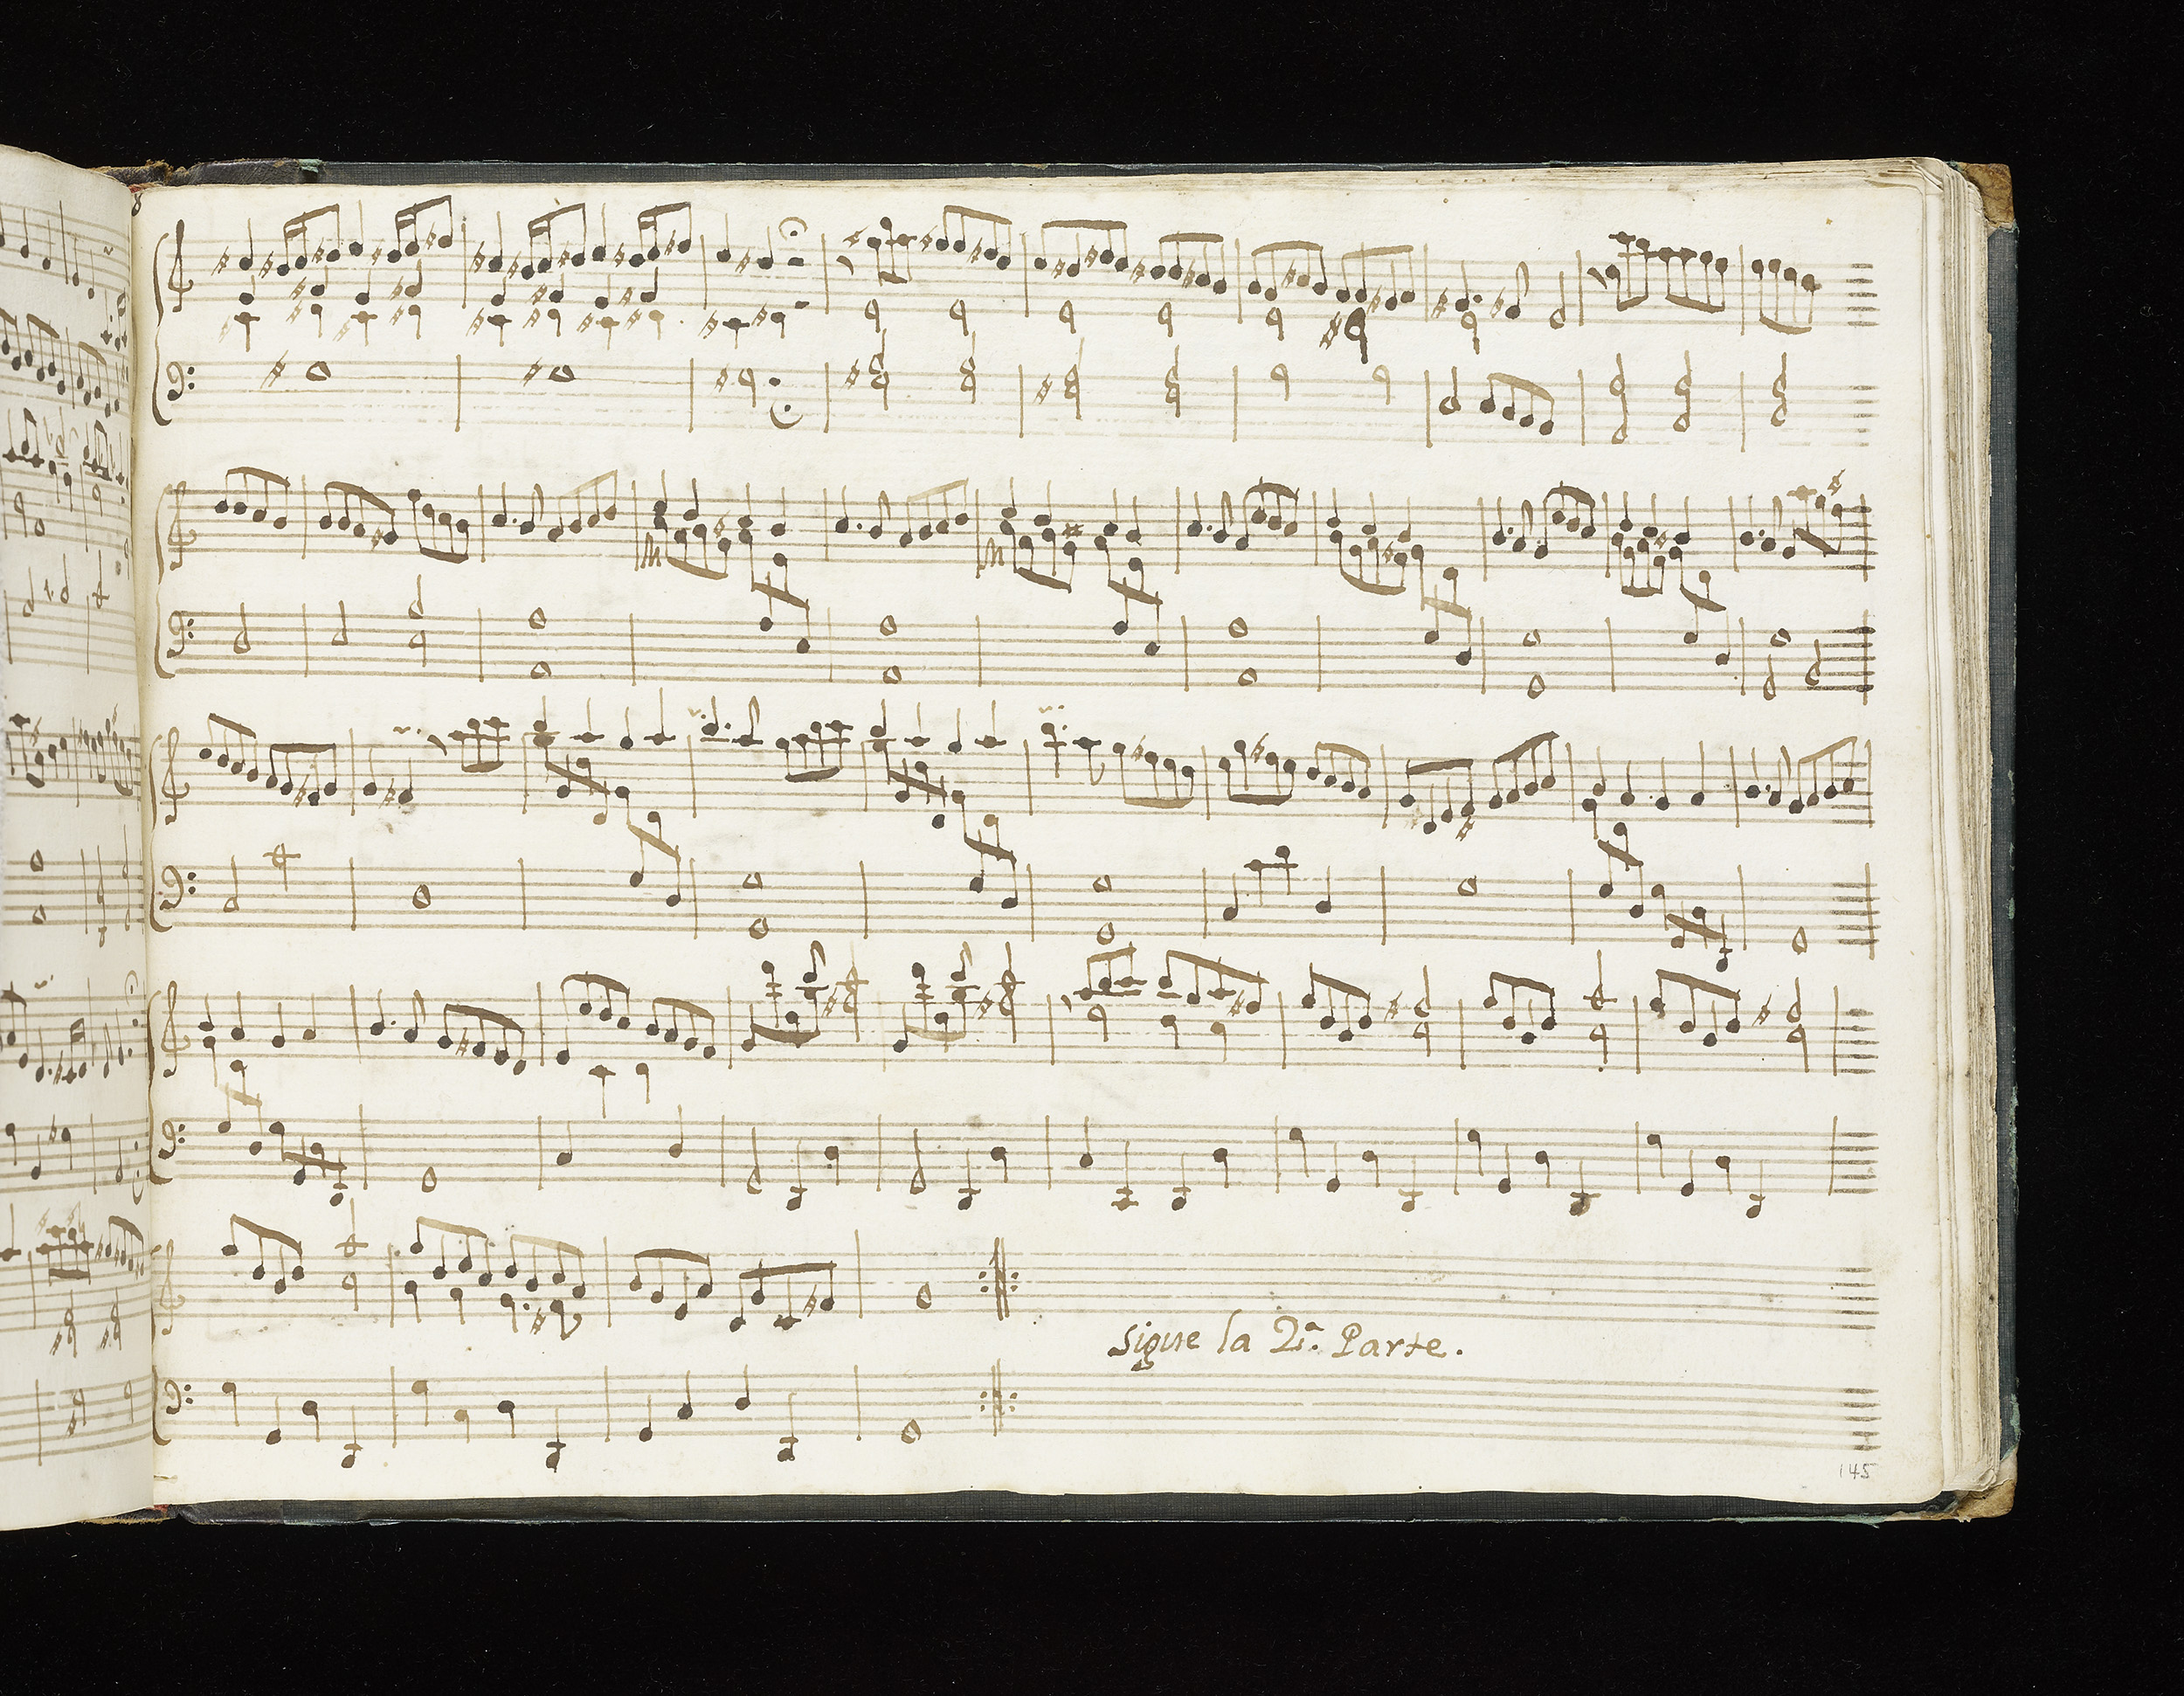 8
M M
Sigue la 2.ª Parte.
145